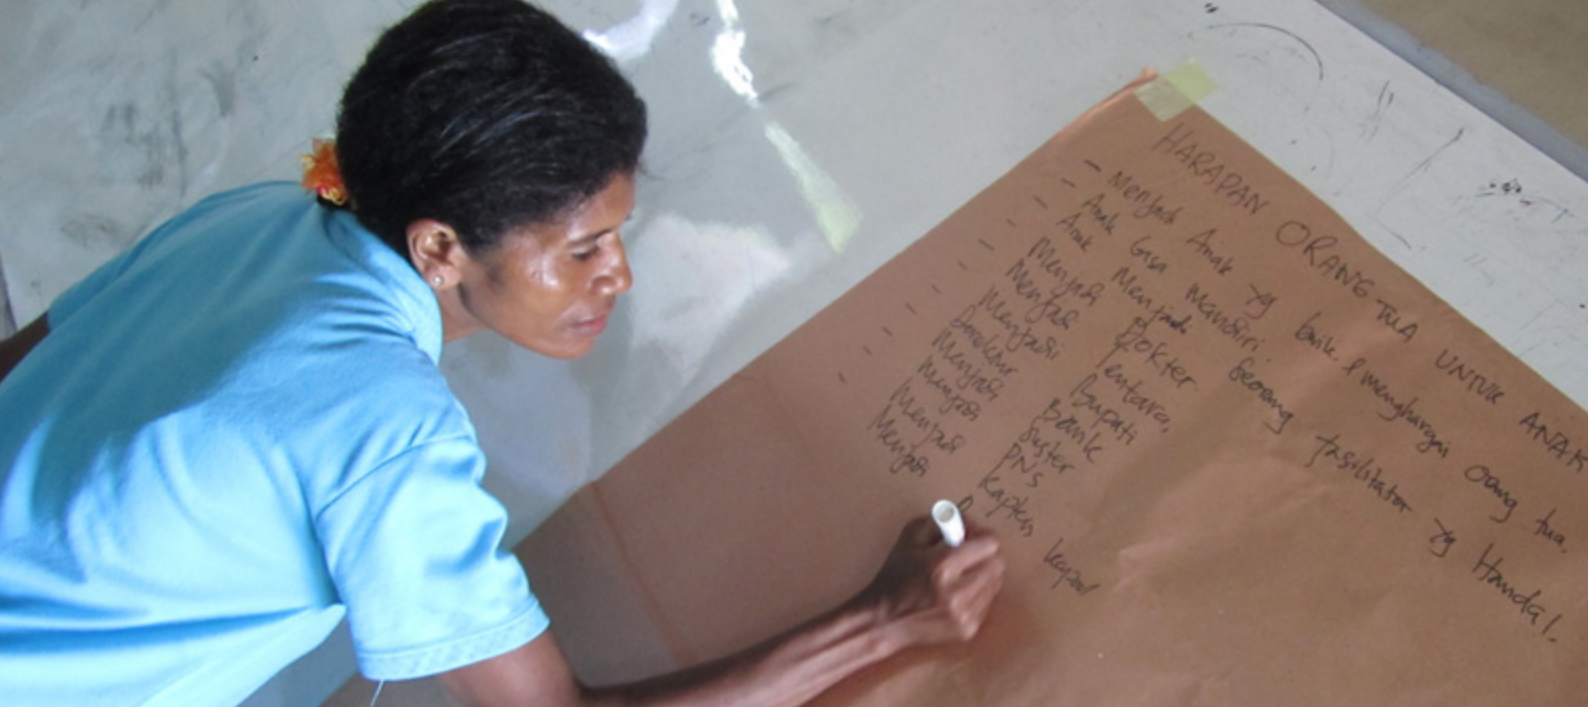 HARAPAN ORANG TUA UNTUK ANAK
- Menjadi Anak yg baik & menghargai orang tua.
- Anak bisa mandiri.
- Anak Menjadi seorang fasilitator yg Handal.
- Menjadi Dokter
- Menjadi Tentara,
- Menjadi Bupati
- Direktur Bank
- Menjadi Suster
- Menjadi PNS
- Menjadi Kapten kapal
Menjadi